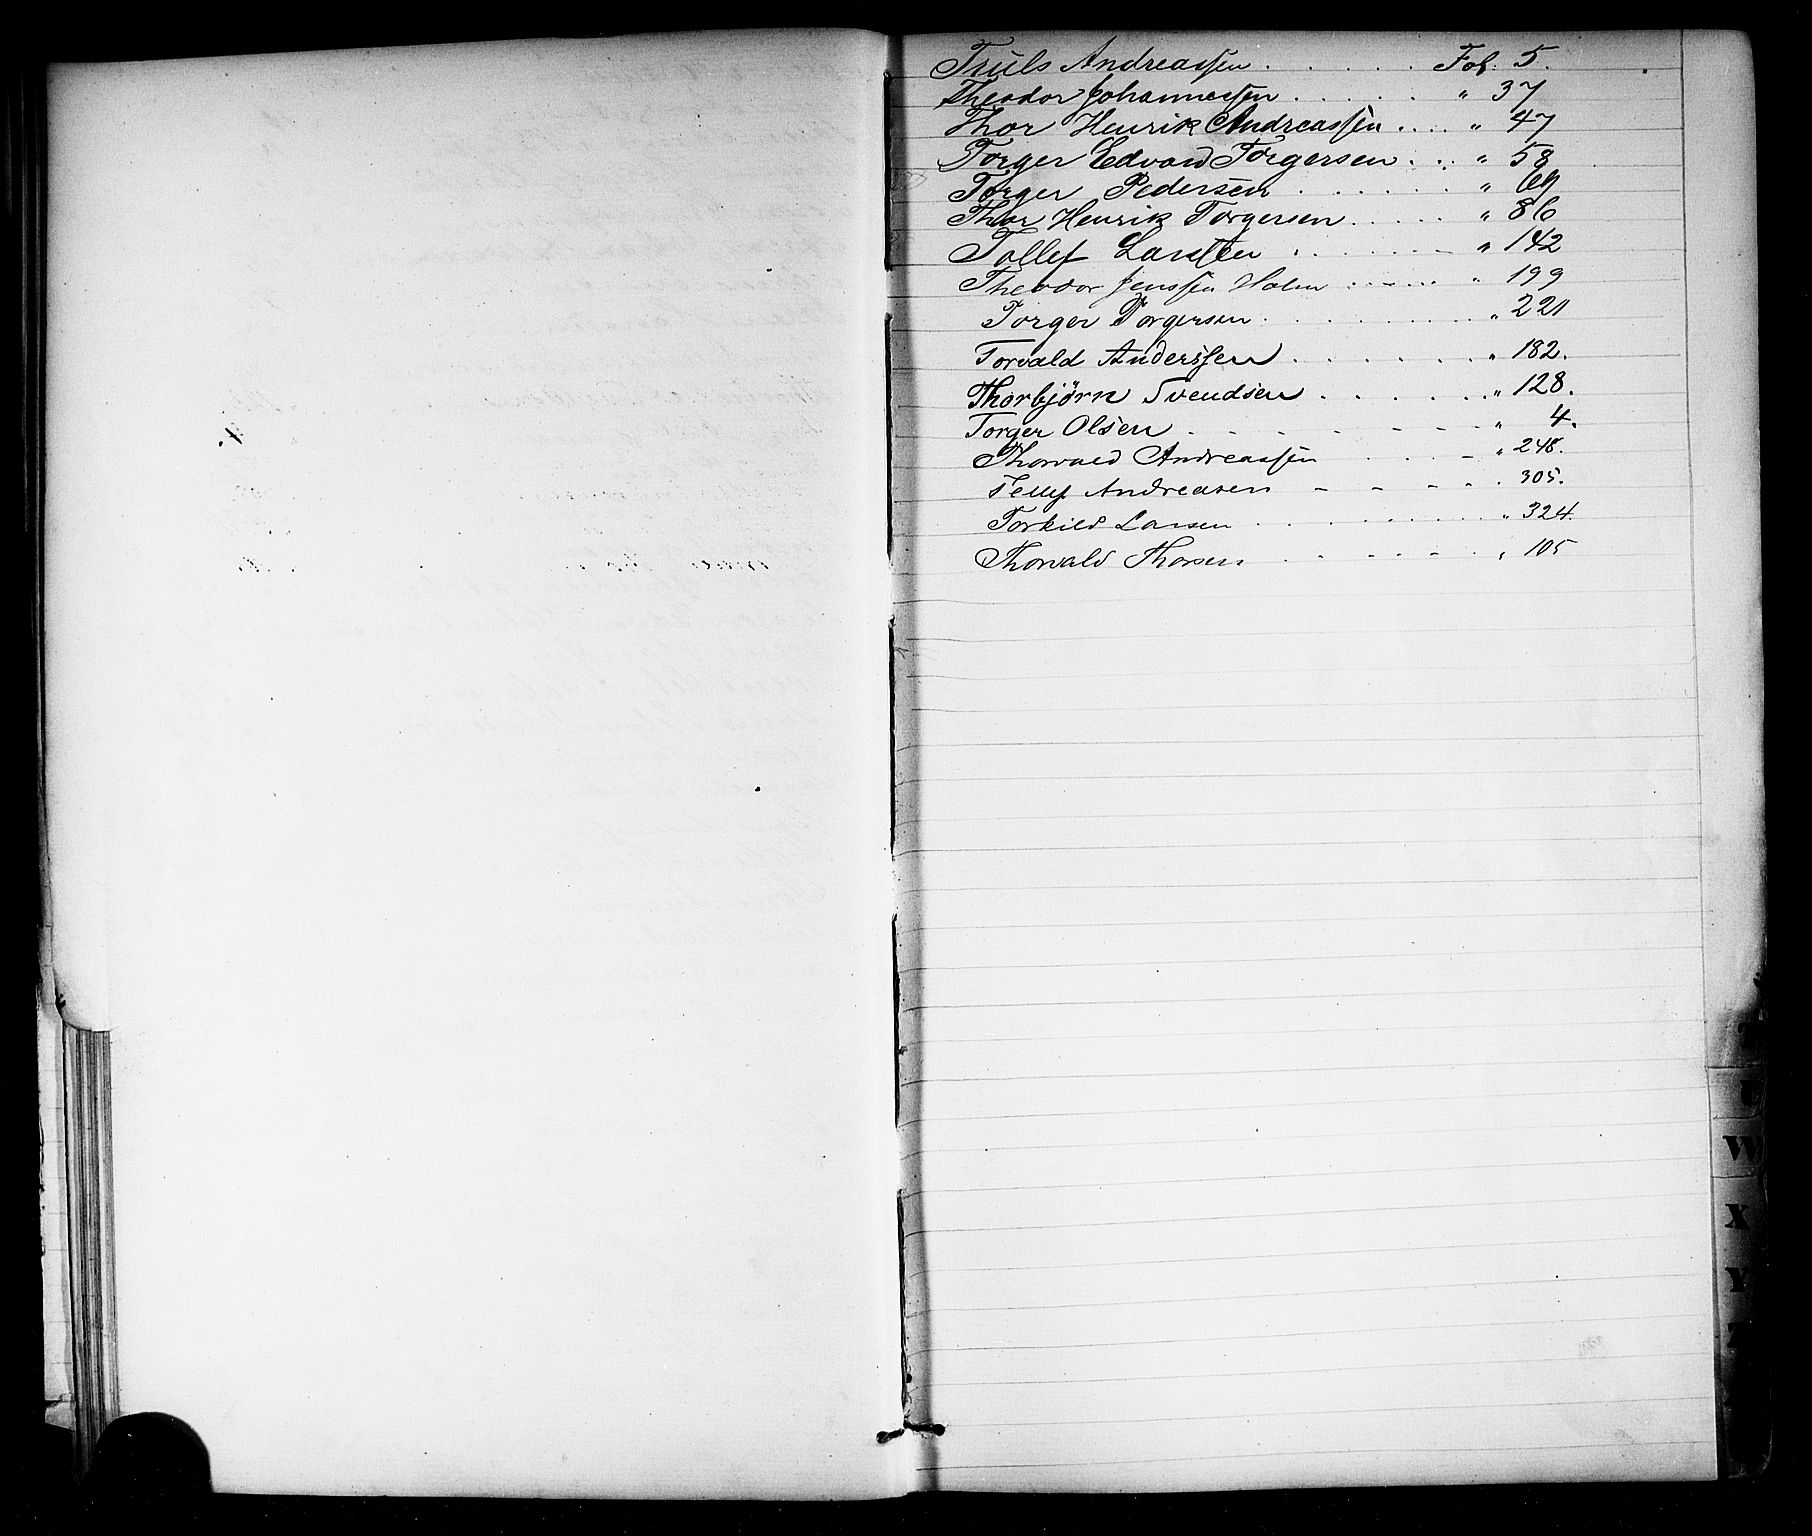 Truls Andreassen . . . . . . Fol. 5.
Theodor Johannessen . . . . . " 37
Thor Henrik Andreassen . . . . " 47
Torger Edvard Torgersen . . . " 58
Torger Pedersen . . . . . "
Thor Henrik Torgersen . . . . . " 86
Tollef Larssen . . . . . . " 142
Theodor Jenssen Holm . . . . . " 199
Torger Torgersen . . . . . . " 221
Torvald Anderssen . . . . . . " 182.
Thorbjørn Svendsen . . . . . . " 128.
Torger Olsen . . . . . . " 4.
Thorvald Andreassen . . . " 248.
Tellef Andreasen - - - - " 305.
Torkild Larsen . . . . . . " 324.
Thorvald Thorsen . . . . . " 105
W
X
Y
Z